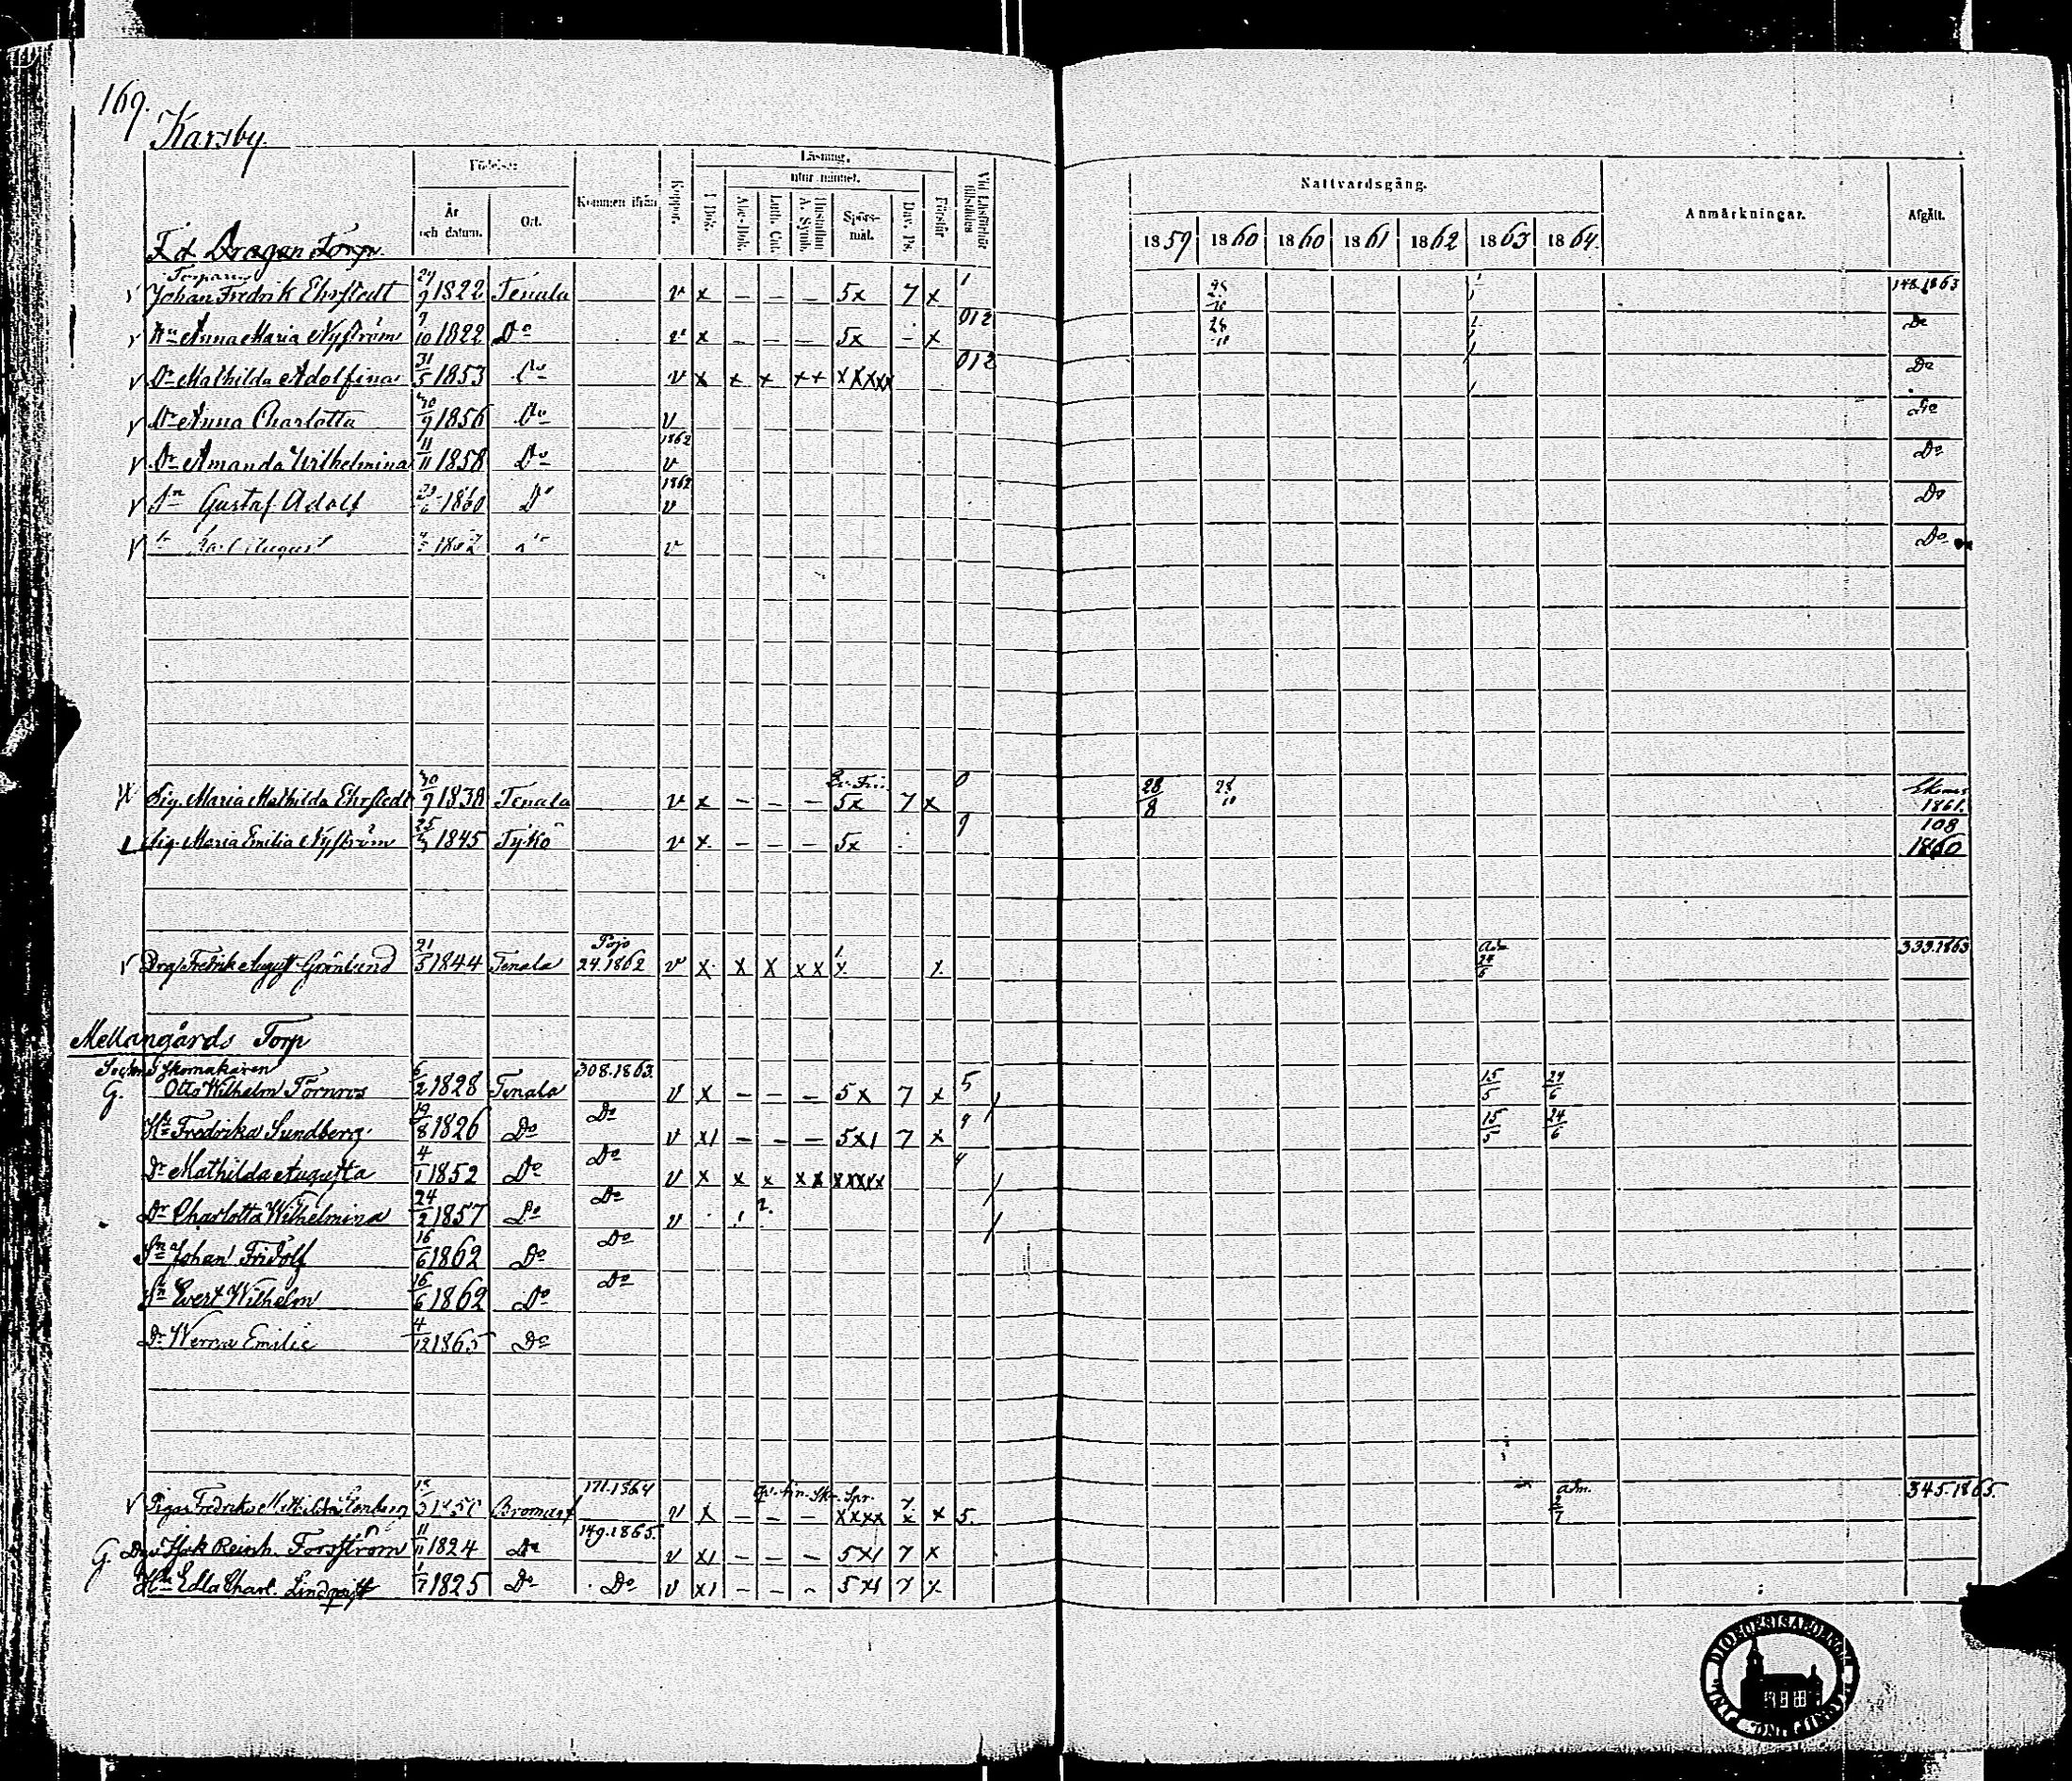 169.
Karsby.
Födelse
Kommen ifrån
Koppor.
Läsning.
utur minnet.
År och datum.
Ort.
I Bok.
Abc-Bok.
Luth. Cat.
Hustaflan A. Symb.
Spörs-mål.
Dav. Ps.
Förstår
Vid Läsförhör tillstädes
Nattvardsgång.
1859 1860 1860 1861 1862 1863 1864.
Anmärkningar.
Afgått.
Torp.
Torparen
Johan Fredrik Ehrstedt 29/9 1822 Tenala v x – – – 5x 7 x 1 148.1863
Hn Anna Maria Nyström 7/10 1822 Do v x – – – 5x – x 012 Do
Dr Mathilda Adolfina 31/5 1853 Do v x x x xx xxxxx 012 Do
Dr Anna Charlotta 30/9 1856 Do v Do
Dr Amanda Wilhelmina 11/11 1858 Do 1862 v Do
Sn Gustaf Adolf 1860 Do 1862 v Do
Carl August v Do
Pig. Maria Mathilda Ehrstedt 30/9 1838 Tenala v x – – – 5x 7 x 0 28/8 28/10 1861.
Pig. Maria Emilia Nyström 1845 Tykö v x – – – 5x 9 108 1860
Drg Fredrik August Grönlund 21/5 1844 Tenala Pojo 24.1862 v x x x xx x x 24/6 333.1863
Mellangårds Torp
Sockenskomakaren
G. Otto Wilhelm Törnroos 6/2 1828 Tenala 308.1863. v x – – – 5x 7 x 5 15/5 24/6
Hn Fredrika Sundberg 19/8 1826 Do Do v x1 – – – 5x1 7 x 9 15/5 24/6
Dr Mathilda Augusta 4/1 1852 Do Do v x x x xx xxxxx 4
Dr Charlotta Wilhelmina 24/2 1857 Do Do v
Sn Johan Fridolf 16/6 1862 Do Do
Sn Evert Wilhelm 16/6 1862 Do Do
Dr Werna Emilie 4/12 1865 Do
Pigan Fredrika Bromarf 171.1864 v x – – – xxxx 7 x x 5. adm. 2/7 345.1865.
G. Isak Reinh. Forsström 11/11 1824 Do 149.1865. v x1 – – – 5x1 7 x
Hn Edla Charl. Lindqvist 1/7 1825 Do Do v x1 – – – 5x1 7 x